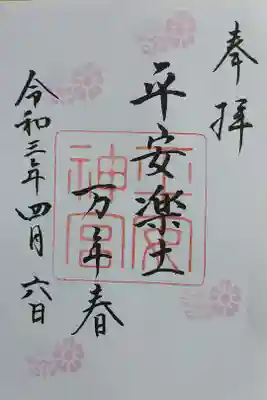 奉拝
平安楽土
万年春
令和三年四月六日
平安神宮